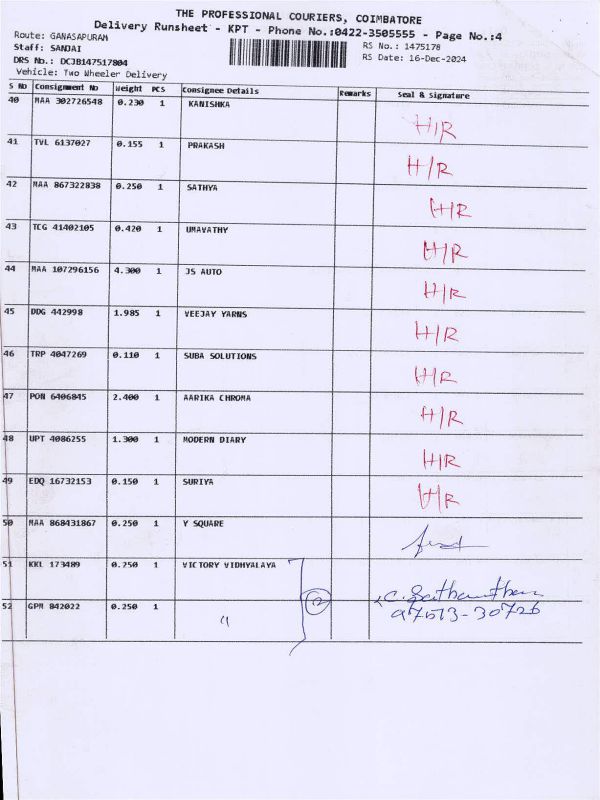 THE PROFESSIONAL COURIERS, COIMBATORE
Delivery Runsheet - KPT - Phone No.:0422-3505555 - Page No.:4
Route: GANASAPURAM
RS No.: 1475178
Staff: SANJAI
RS Date: 16-Dec-2024
DRS No.: DCJB147517804
Vehicle: Two Wheeler Delivery
S No Consignment No Weight PCS Consignee Details Remarks Seal & Signature
40 MAA 302726548 0.230 1 KANISHKA H/R
41 TVL 6137027 0.155 1 PRAKASH H/R
42 MAA 867322838 0.250 1 SATHYA H/R
43 TCG 41402105 0.420 1 UMAVATHY H/R
44 MAA 107296156 4.300 1 JS AUTO H/R
45 DDG 442998 1.985 1 VEEJAY YARNS H/R
46 TRP 4047269 0.110 1 SUBA SOLUTIONS H/R
47 PON 6406845 2.400 1 AARIKA CHROMA H/R
48 UPT 4086255 1.300 1 MODERN DIARY H/R
49 EDQ 16732153 0.150 1 SURIYA H/R
50 MAA 868431867 0.250 1 Y SQUARE
51 KKL 173489 0.250 1 VICTORY VIDHYALAYA
52 GPM 842022 0.250 1 "
97513-30726